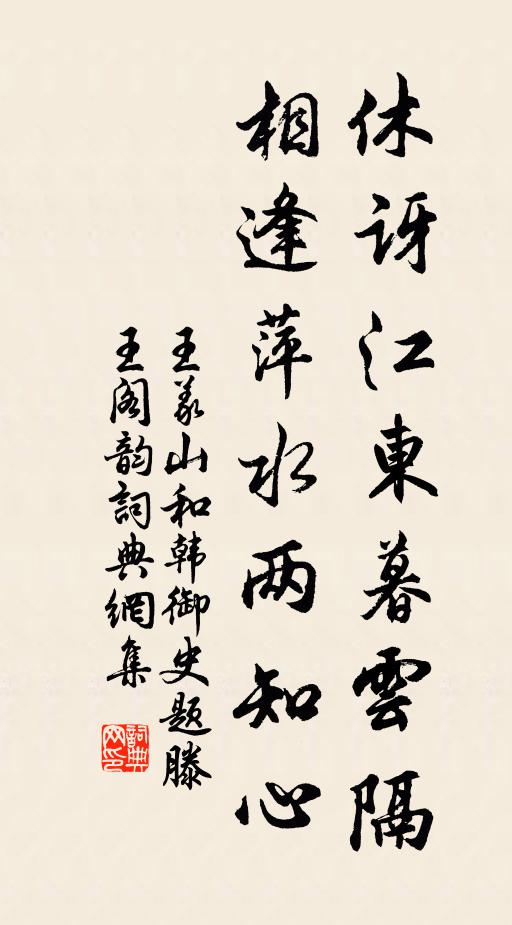 休訝江東暮雲隔
相逢萍水两知心
王义山和韩御史题滕
王阁韵詞典網集
詞典
网印